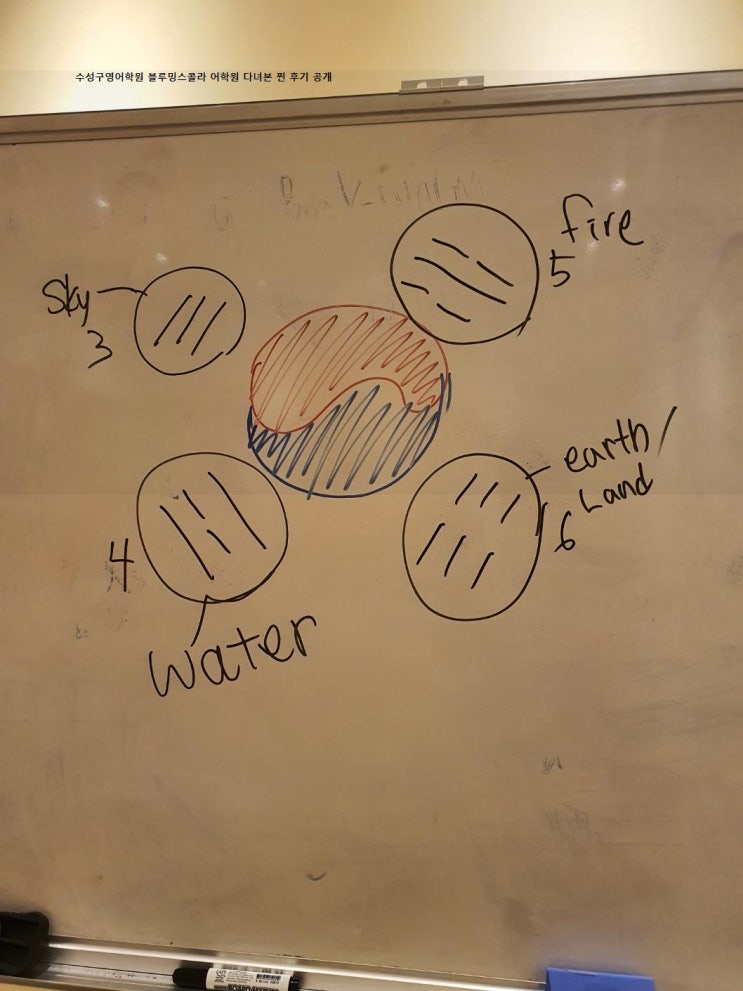 수성구영어학원 블루밍스콜라 어학원 다녀본 찐 후기 공개
fire
5
Sky
3
earth/
Land
6
4
water